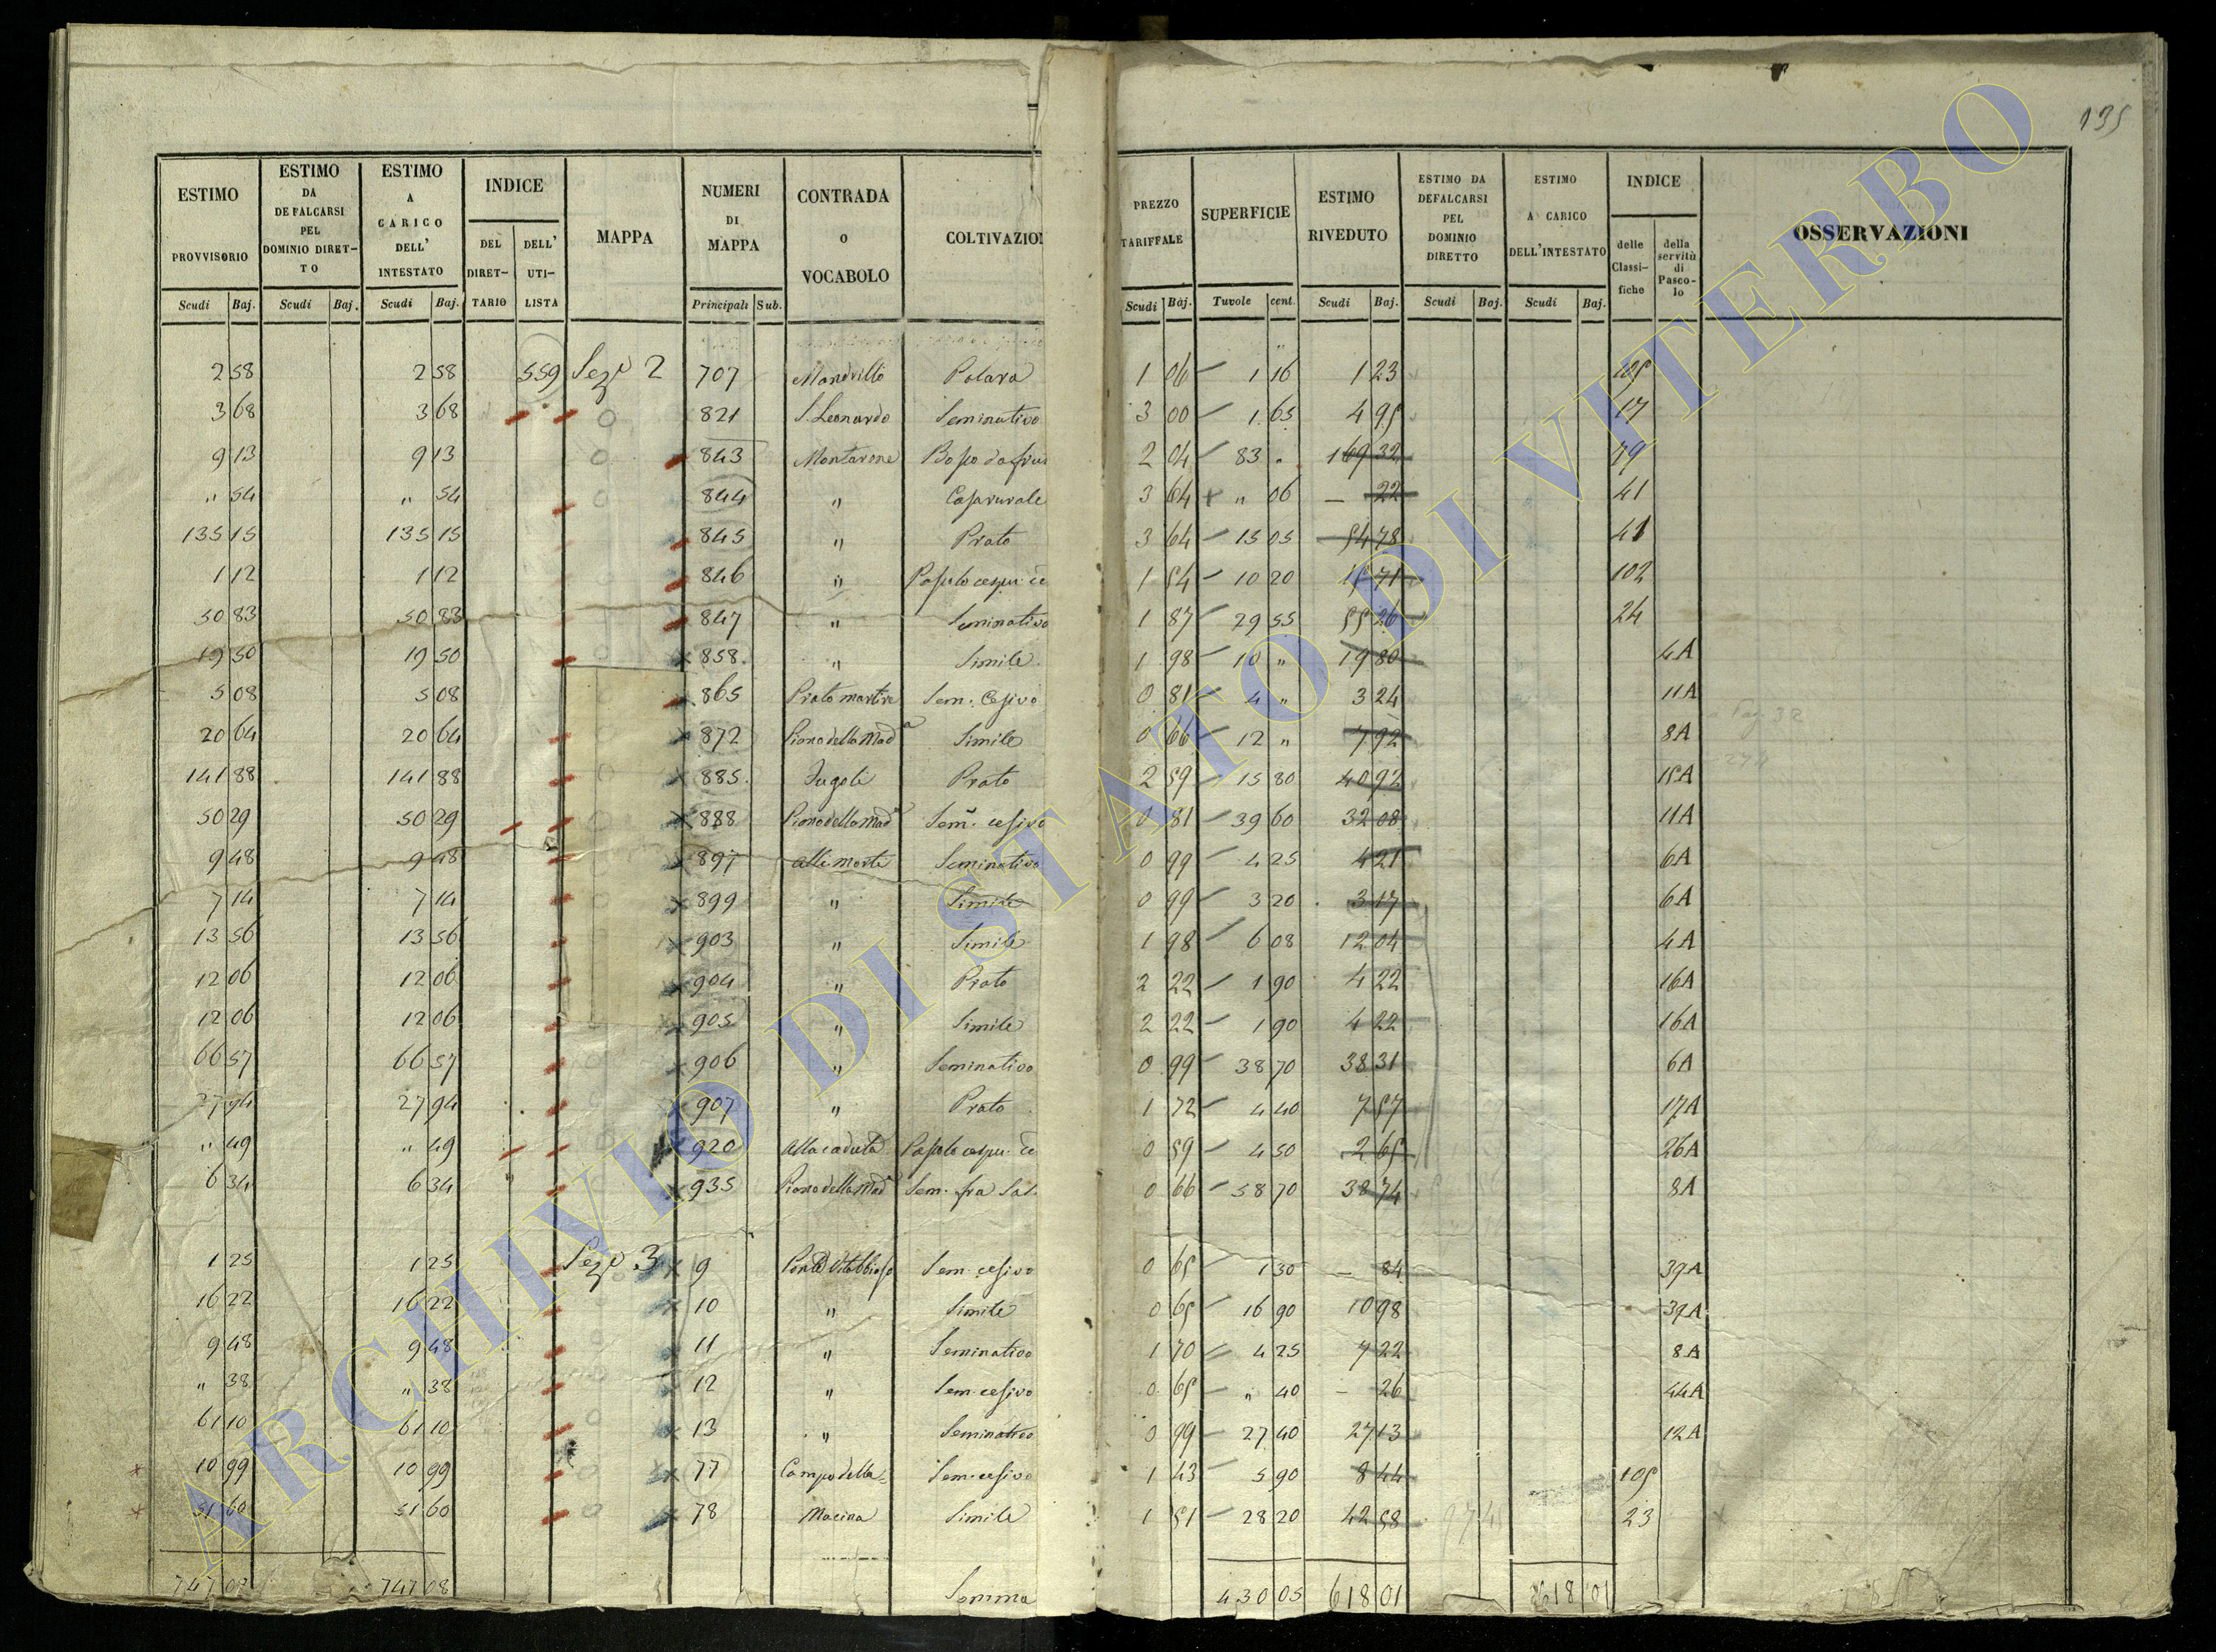 135
ESTIMO PROVVISORIO Scudi Baj.
ESTIMO DA DEFALCARSI PEL DOMINIO DIRETTO Scudi Baj.
ESTIMO A CARICO DELL' INTESTATO Scudi Baj.
INDICE DEL DIRETTARIO DELL' UTILISTA
MAPPA
NUMERI DI MAPPA Principali Sub.
CONTRADA O VOCABOLO
COLTIVAZIO
PREZZO TARIFFALE Scudi Baj.
SUPERFICIE Tavole cent.
ESTIMO RIVEDUTO Scudi Baj.
ESTIMO DA DEFALCARSI PEL DOMINIO DIRETTO Scudi Baj.
ESTIMO A CARICO DELL'INTESTATO Scudi Baj.
INDICE delle Classifiche della servitù di Pascolo
OSSERVAZIONI
2 58 2 58 559 Seze 2 707 Mandrillo Polara 1 06 1 16 1 23 105
3 68 3 68 821 S. Leonardo Seminativo 3 00 1 65 4 95 17
9 13 9 13 843 Montarone 2 04 83 " 169 32 79
" 54 " 54 844 " Casa rurale 3 64 " 06 — 22 41
135 15 135 15 845 " Prato 3 64 15 05 54 78 41
1 12 1 12 846 " Pascolo cespu. ce 1 54 10 20 15 71 102
50 83 50 83 847 " Seminativo 1 87 29 55 55 26 24
19 50 19 50 858 " Simile 1 98 10 " 19 80 4A
5 08 5 08 865 Prato martire Sem. Cesivo 0 81 4 " 3 24 11A
20 64 20 64 872 Piano della Mada Simile 0 66 12 " 7 92 8A
141 88 141 88 885 Prato 2 59 15 80 40 92 15A
50 29 50 29 888 Piano della Mada Sem. cesivo 0 81 39 60 32 08 11A
9 48 9 48 897 alle morte Seminativo 0 99 4 25 4 21 6A
7 14 7 14 899 " Simile 0 99 3 20 3 17 6A
13 56 13 56 903 " Simile 1 98 6 08 12 04 4A
12 06 12 06 904 " Prato 2 22 1 90 4 22 16A
12 06 12 06 905 " Simile 2 22 1 90 4 22 16A
66 57 66 57 906 " Seminativo 0 99 38 70 38 31 6A
27 94 27 94 907 " Prato 1 72 4 40 7 57 17A
" 49 " 49 920 Alla caduta Pascolo cespu. ce 0 59 4 50 2 65 26A
6 34 6 34 935 Piano della Mada Sem. fra Sas. 0 66 58 70 38 74 8A
1 25 1 25 Sezo 3 9 Sem. cesivo 0 65 1 30 — 84 39A
16 22 16 22 10 " Simile 0 65 16 90 10 98 39A
9 48 9 48 11 " Seminativo 1 70 4 25 7 22 8A
" 38 " 38 12 " Sem. cesivo 0 65 " 40 — 26 44A
61 10 61 10 13 " Seminativo 0 99 27 40 27 13 12A
10 99 10 99 77 Campo della Sem. cesivo 1 43 5 90 8 44 105
51 60 51 60 78 Macina Simile 1 51 28 20 42 58 23
747 08 747 08 Somma 430 05 618 01 618 01
ARCHIVIO DI STATO DI VITERBO